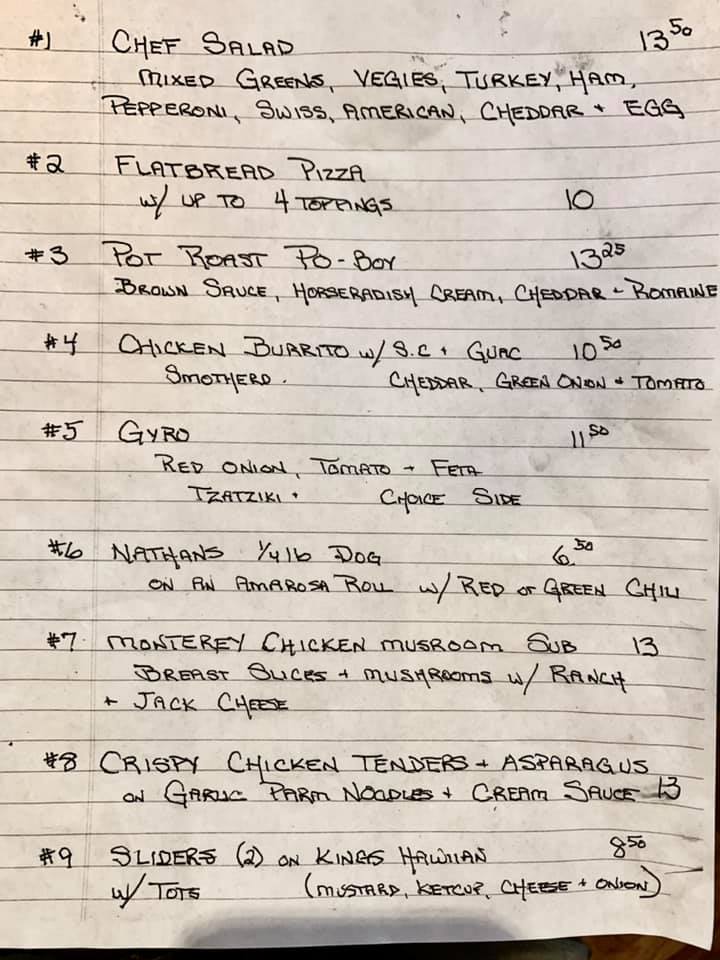 #1 CHEF SALAD 13 50
MIXED GREENS, VEGIES, TURKEY, HAM,
PEPPERONI, SWISS, AMERICAN, CHEDDAR + EGG
#2 FLATBREAD PIZZA
w/ UP TO 4 TOPPINGS 10
#3 POT ROAST PO-BOY 13 25
BROWN SAUCE, HORSERADISH CREAM, CHEDDAR - ROMAINE
#4 CHICKEN BURRITO w/ S.C + GUAC 10 50
SMOTHERD. CHEDDAR, GREEN ONION + TOMATO
#5 GYRO 11 50
RED ONION, TOMATO + FETA
TZATZIKI. CHOICE SIDE
#6 NATHANS 1/4 lb DOG 6 50
ON AN AMAROSA ROLL w/ RED or GREEN CHILI
#7. MONTEREY CHICKEN MUSROOM SUB 13
BREAST SLICES + MUSHROOMS w/ RANCH
+ JACK CHEESE
#8 CRISPY CHICKEN TENDERS + ASPARAGUS
ON GARLIC PARM NOODLES + CREAM SAUCE 13
#9 SLIDERS (2) ON KINGS HAWIIAN 8 50
w/ TOTS (MUSTARD, KETCUP, CHEESE + ONION)